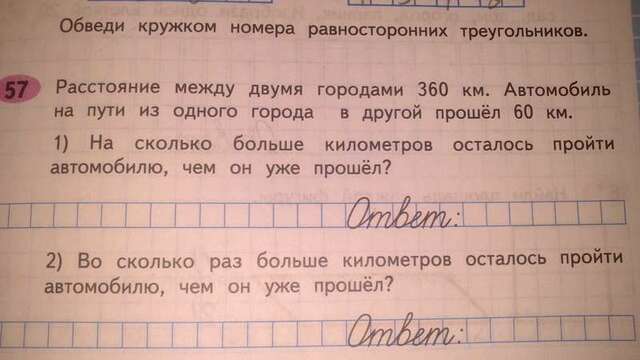 Обведи кружком номера равносторонних треугольников.
57 Расстояние между двумя городами 360 км. Автомобиль
на пути из одного города в другой прошёл 60 км.
1) На сколько больше километров осталось пройти
автомобилю, чем он уже прошёл?
Ответ:
2) Во сколько раз больше километров осталось пройти
автомобилю, чем он уже прошёл?
Ответ: